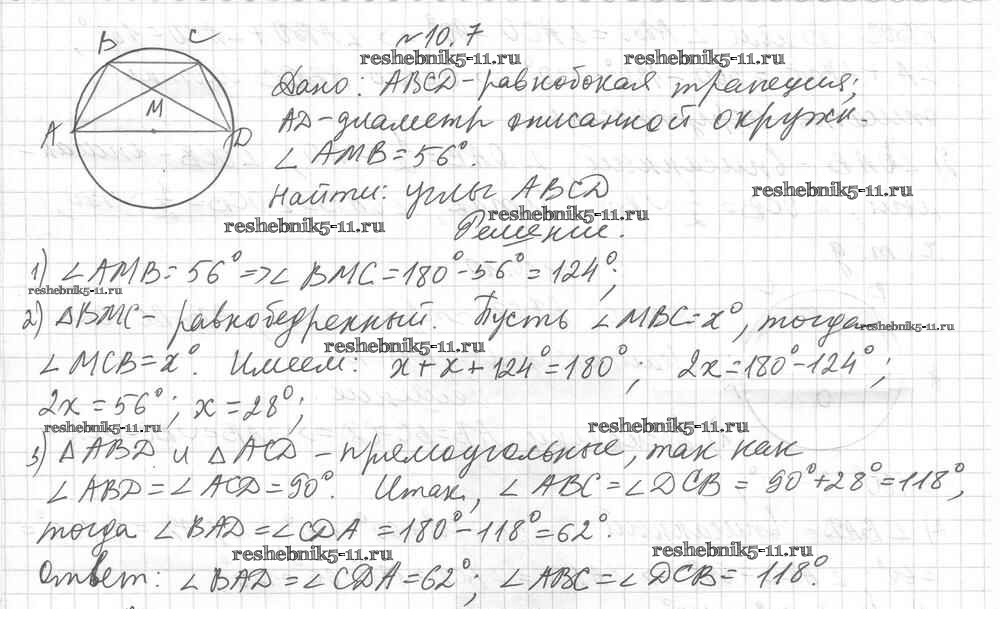 №10.7
reshebnik5-11.ru reshebnik5-11.ru
B C
A M D
Дано: ABCD-равнобокая трапеция;
AD-диаметр описанной окружн.
∠AMB=56°.
Найти: углы ABCD
reshebnik5-11.ru
reshebnik5-11.ru reshebnik5-11.ru
Решение.
1) ∠AMB=56°=>∠BMC=180°-56°=124°;
reshebnik5-11.ru
2) △BMC- равнобедренный. Пусть ∠MBC=x°, тогда
reshebnik5-11.ru
reshebnik5-11.ru
∠MCB=x°. Имеем: x+x+124°=180°; 2x=180°-124°;
2x=56°; x=28°;
reshebnik5-11.ru reshebnik5-11.ru
3) △ABD и △ACD-прямоугольные, так как
∠ABD=∠ACD=90°. Итак, ∠ABC=∠DCB=90°+28°=118°,
тогда ∠BAD=∠CDA=180°-118°=62°.
reshebnik5-11.ru reshebnik5-11.ru
Ответ: ∠BAD=∠CDA=62°; ∠ABC=∠DCB=118°.